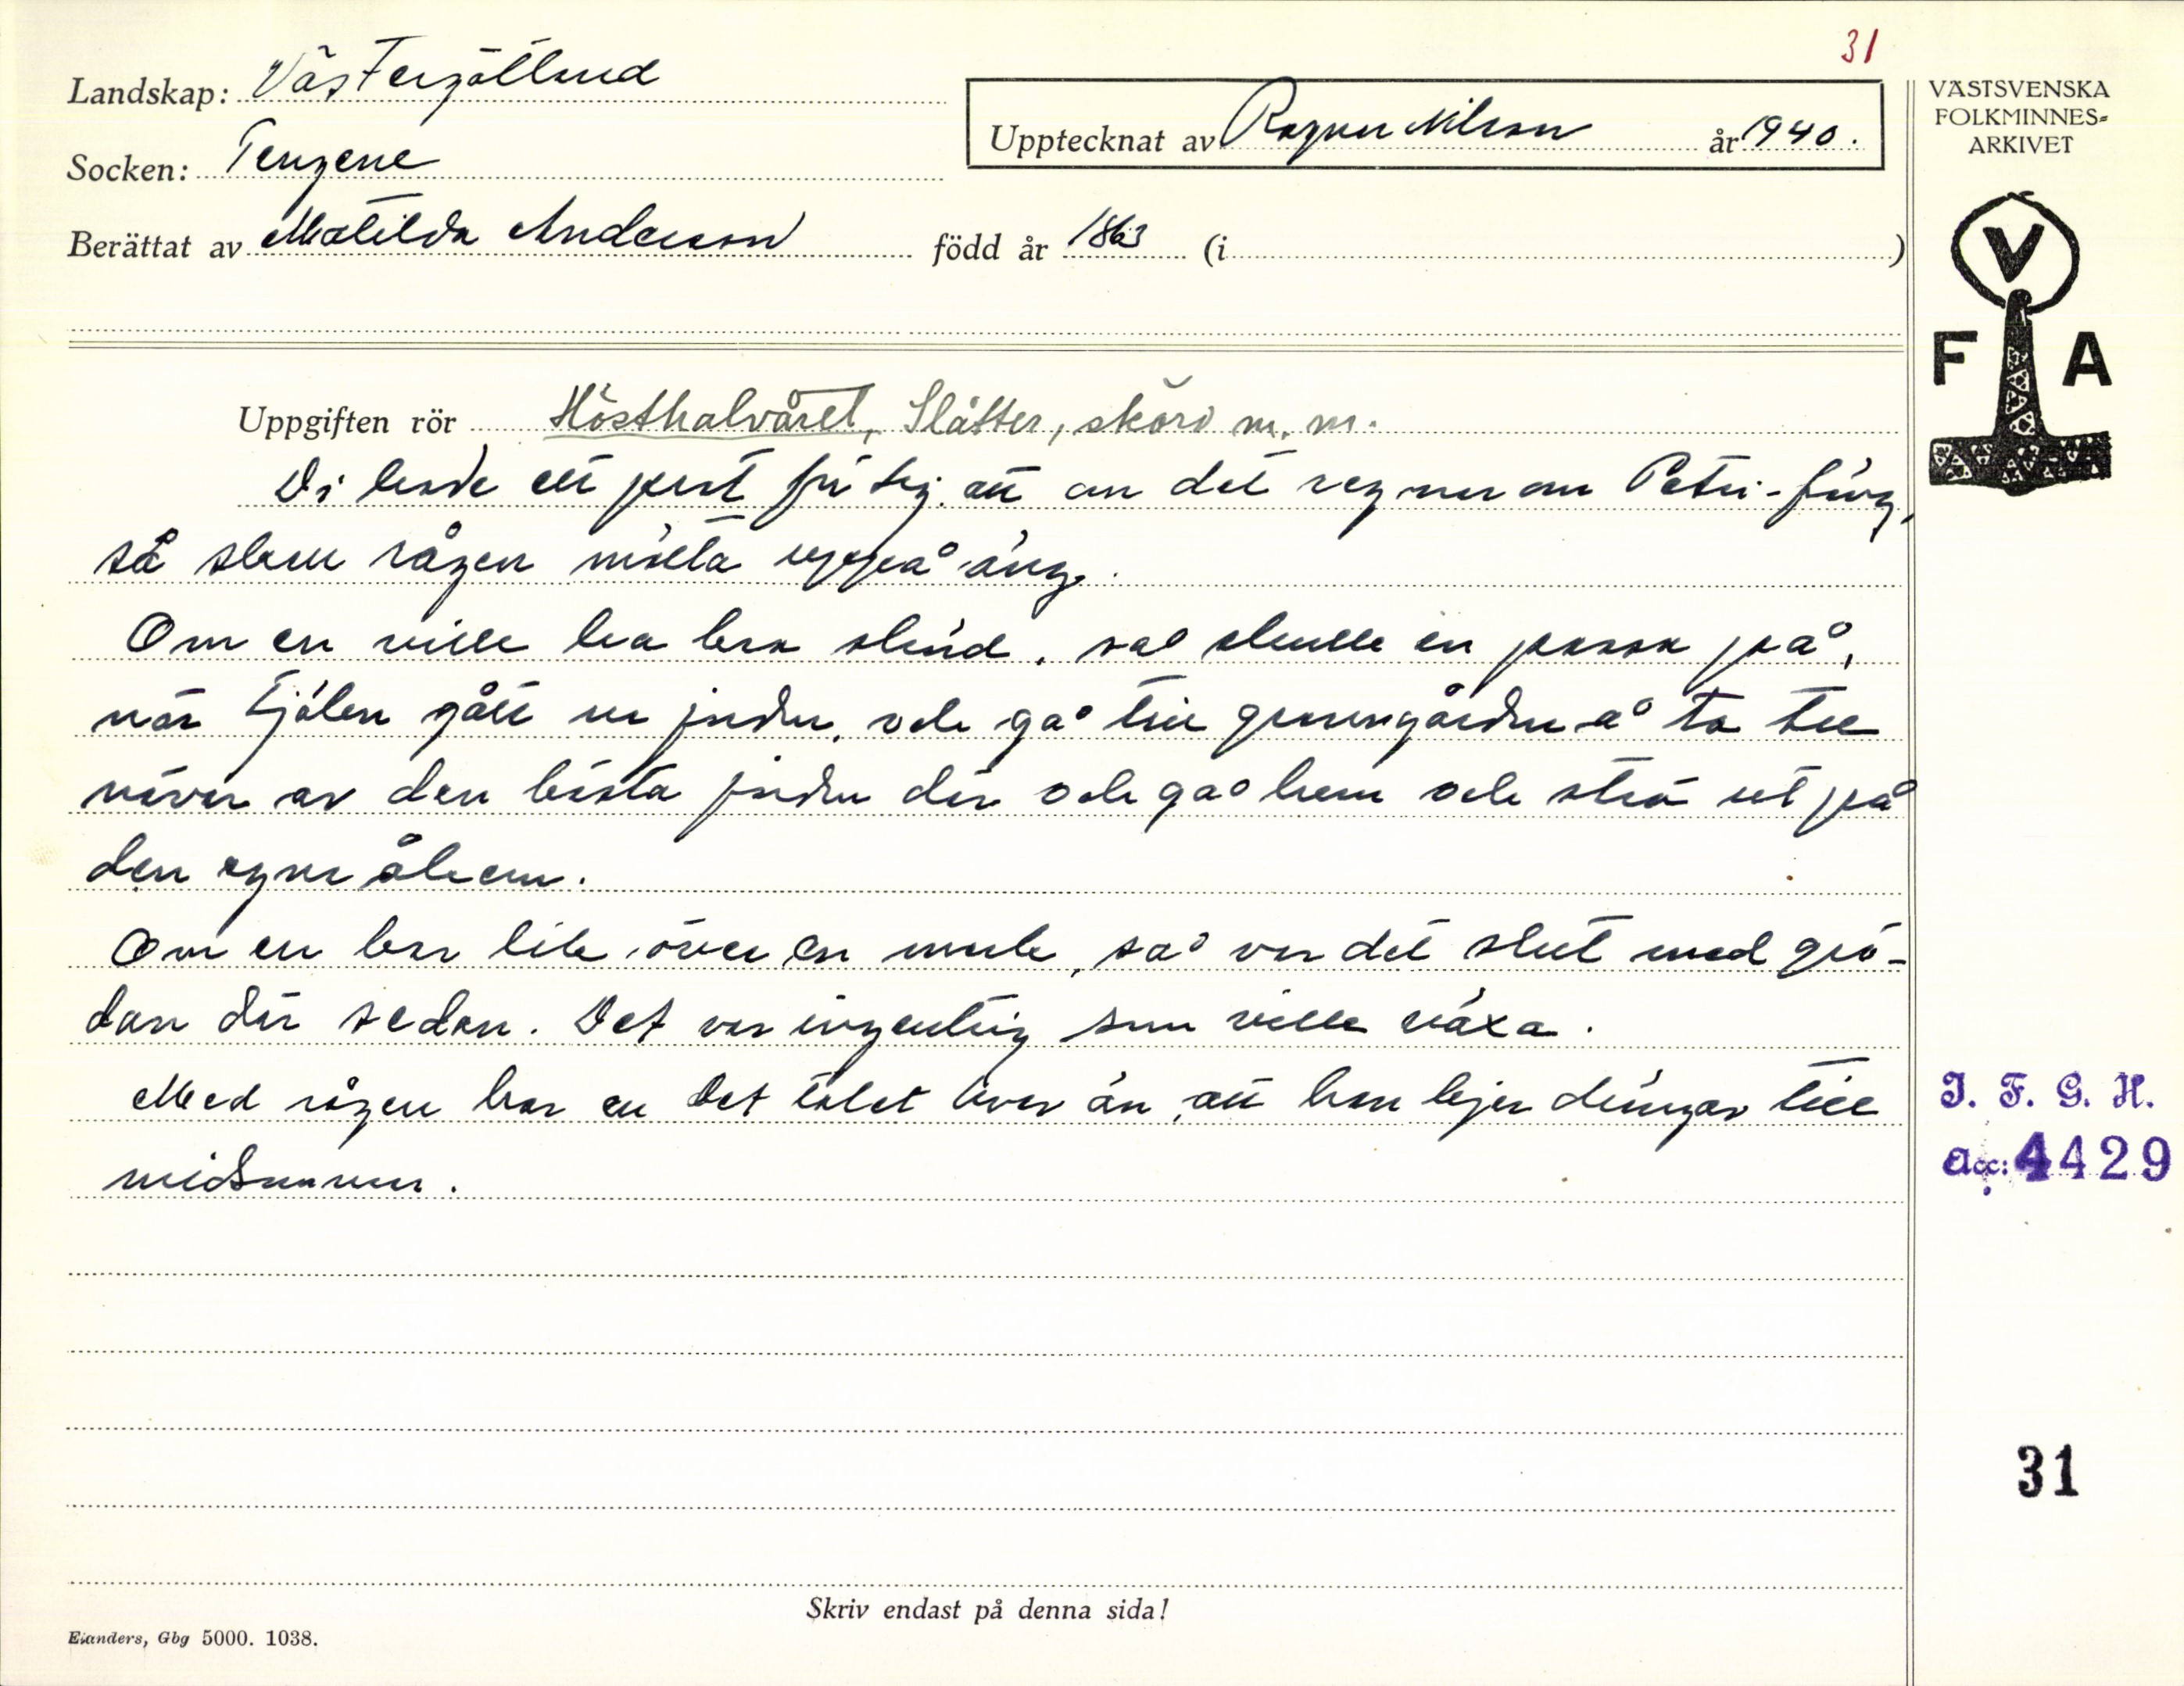 31
Landskap: Västergötland
Socken: Tengene
Upptecknat av Ragnar Nilson år 1940.
Berättat av Matilda Andersson född år 1863 (i )
VÄSTSVENSKA
FOLKMINNES=
ARKIVET
V
F A
Uppgiften rör Hösthalvåret, Slåtter, skörd m. m.
Di hade ett för sej att om det regner om Petri-
så ska rågen mista
Om en ville ha bra skörd, så skulle en passa på,
när tjälen gått ur jorden, och gå till gravgården å ta tre
nävar av den bästa jorden där och gå hem och strö ut på
den egna åkern.
Om en bar lik över en åker, så var det slut med grö-
dan där sedan. Det var ingenting som ville växa.
Med rågen har en det talet över än, att han lejer drängar till
midsommar.
I. F. G. H.
Acc: 4429
31
Skriv endast på denna sida!
Elanders, Gbg 5000. 1038.